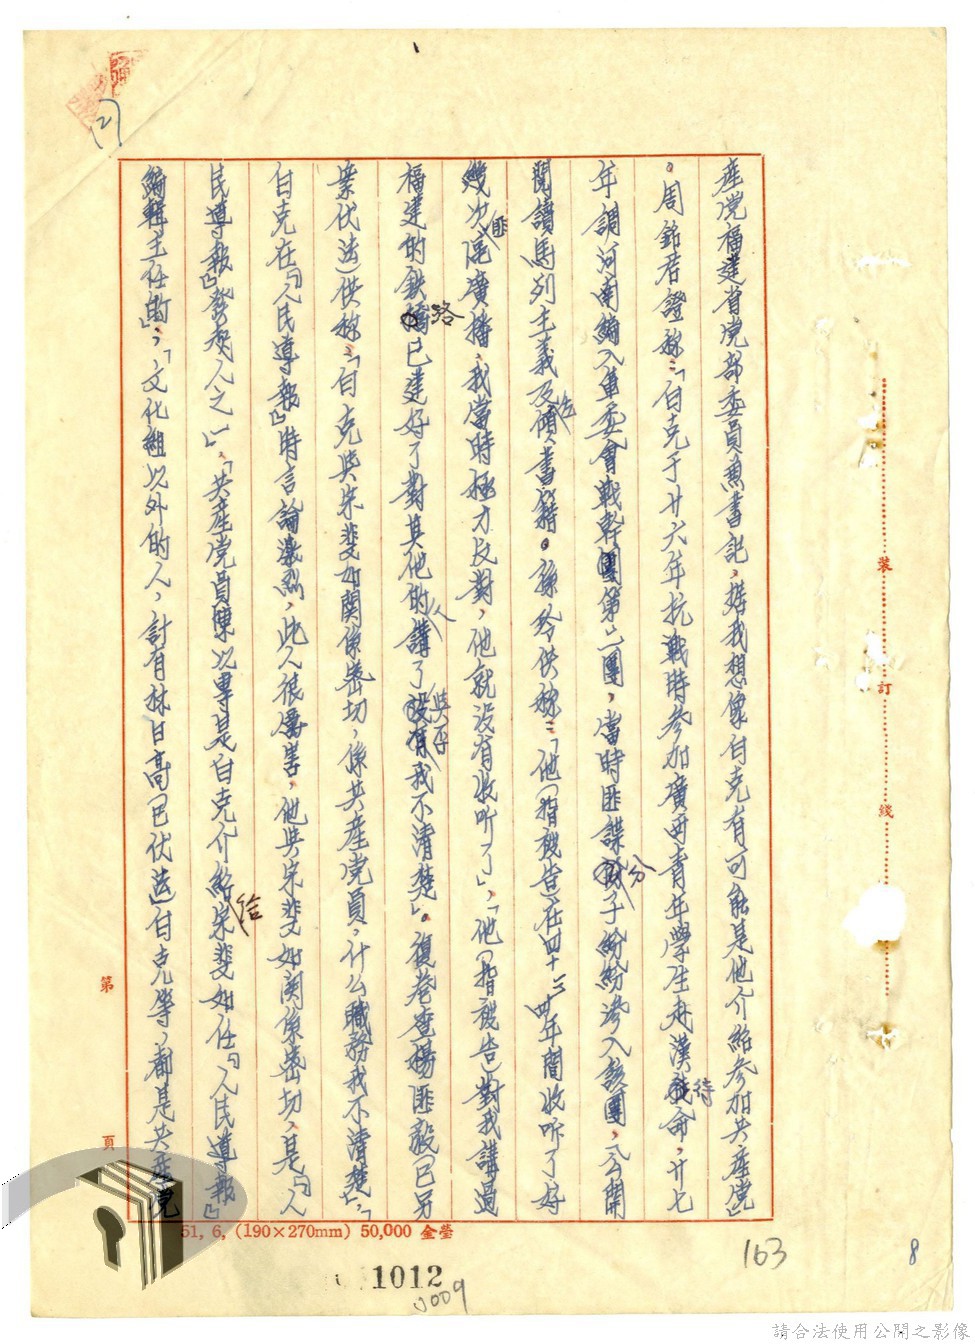 (2)
產党福建省党部委員兼書記，據我想像白克有可能是他介紹參加共產党」
。周銘君證称：「白克于廿六年抗戰時參加廣西青年學生赴漢待命，廿七
年調河南編入軍委會戰幹團第二團，當時匪諜份子紛紛滲入該團，公開
閱讀馬列主義及左傾書籍。孫      供称：「他（指被告）在四十三四年間收听了好
幾次匪區廣播，我當時極力反對，他就没有收听了」，「他（指被告）對我講過
福建的鉄路已建好了對其他的人講了與否我不清楚」。復卷查楊匪毅（已另
案伏法）供称：「白克與宋斐如関係密切，係共産党員，什么職務我不清楚」，「
白克在『人民導報』時言論激烈，此人很厲害，他與宋斐如関係密切，是『人
民導報』發契人之一」，「共産党員陳以專是白克介紹給宋斐如任『人民導報』
編輯主任的」，「文化組以外的人，計有林日高（已伏法）白克等，都是共産党
裝
訂
綫
第
頁
51, 6, (190×270mm) 50,000 金瑩
1012
0009
163
8
請合法使用公開之影像